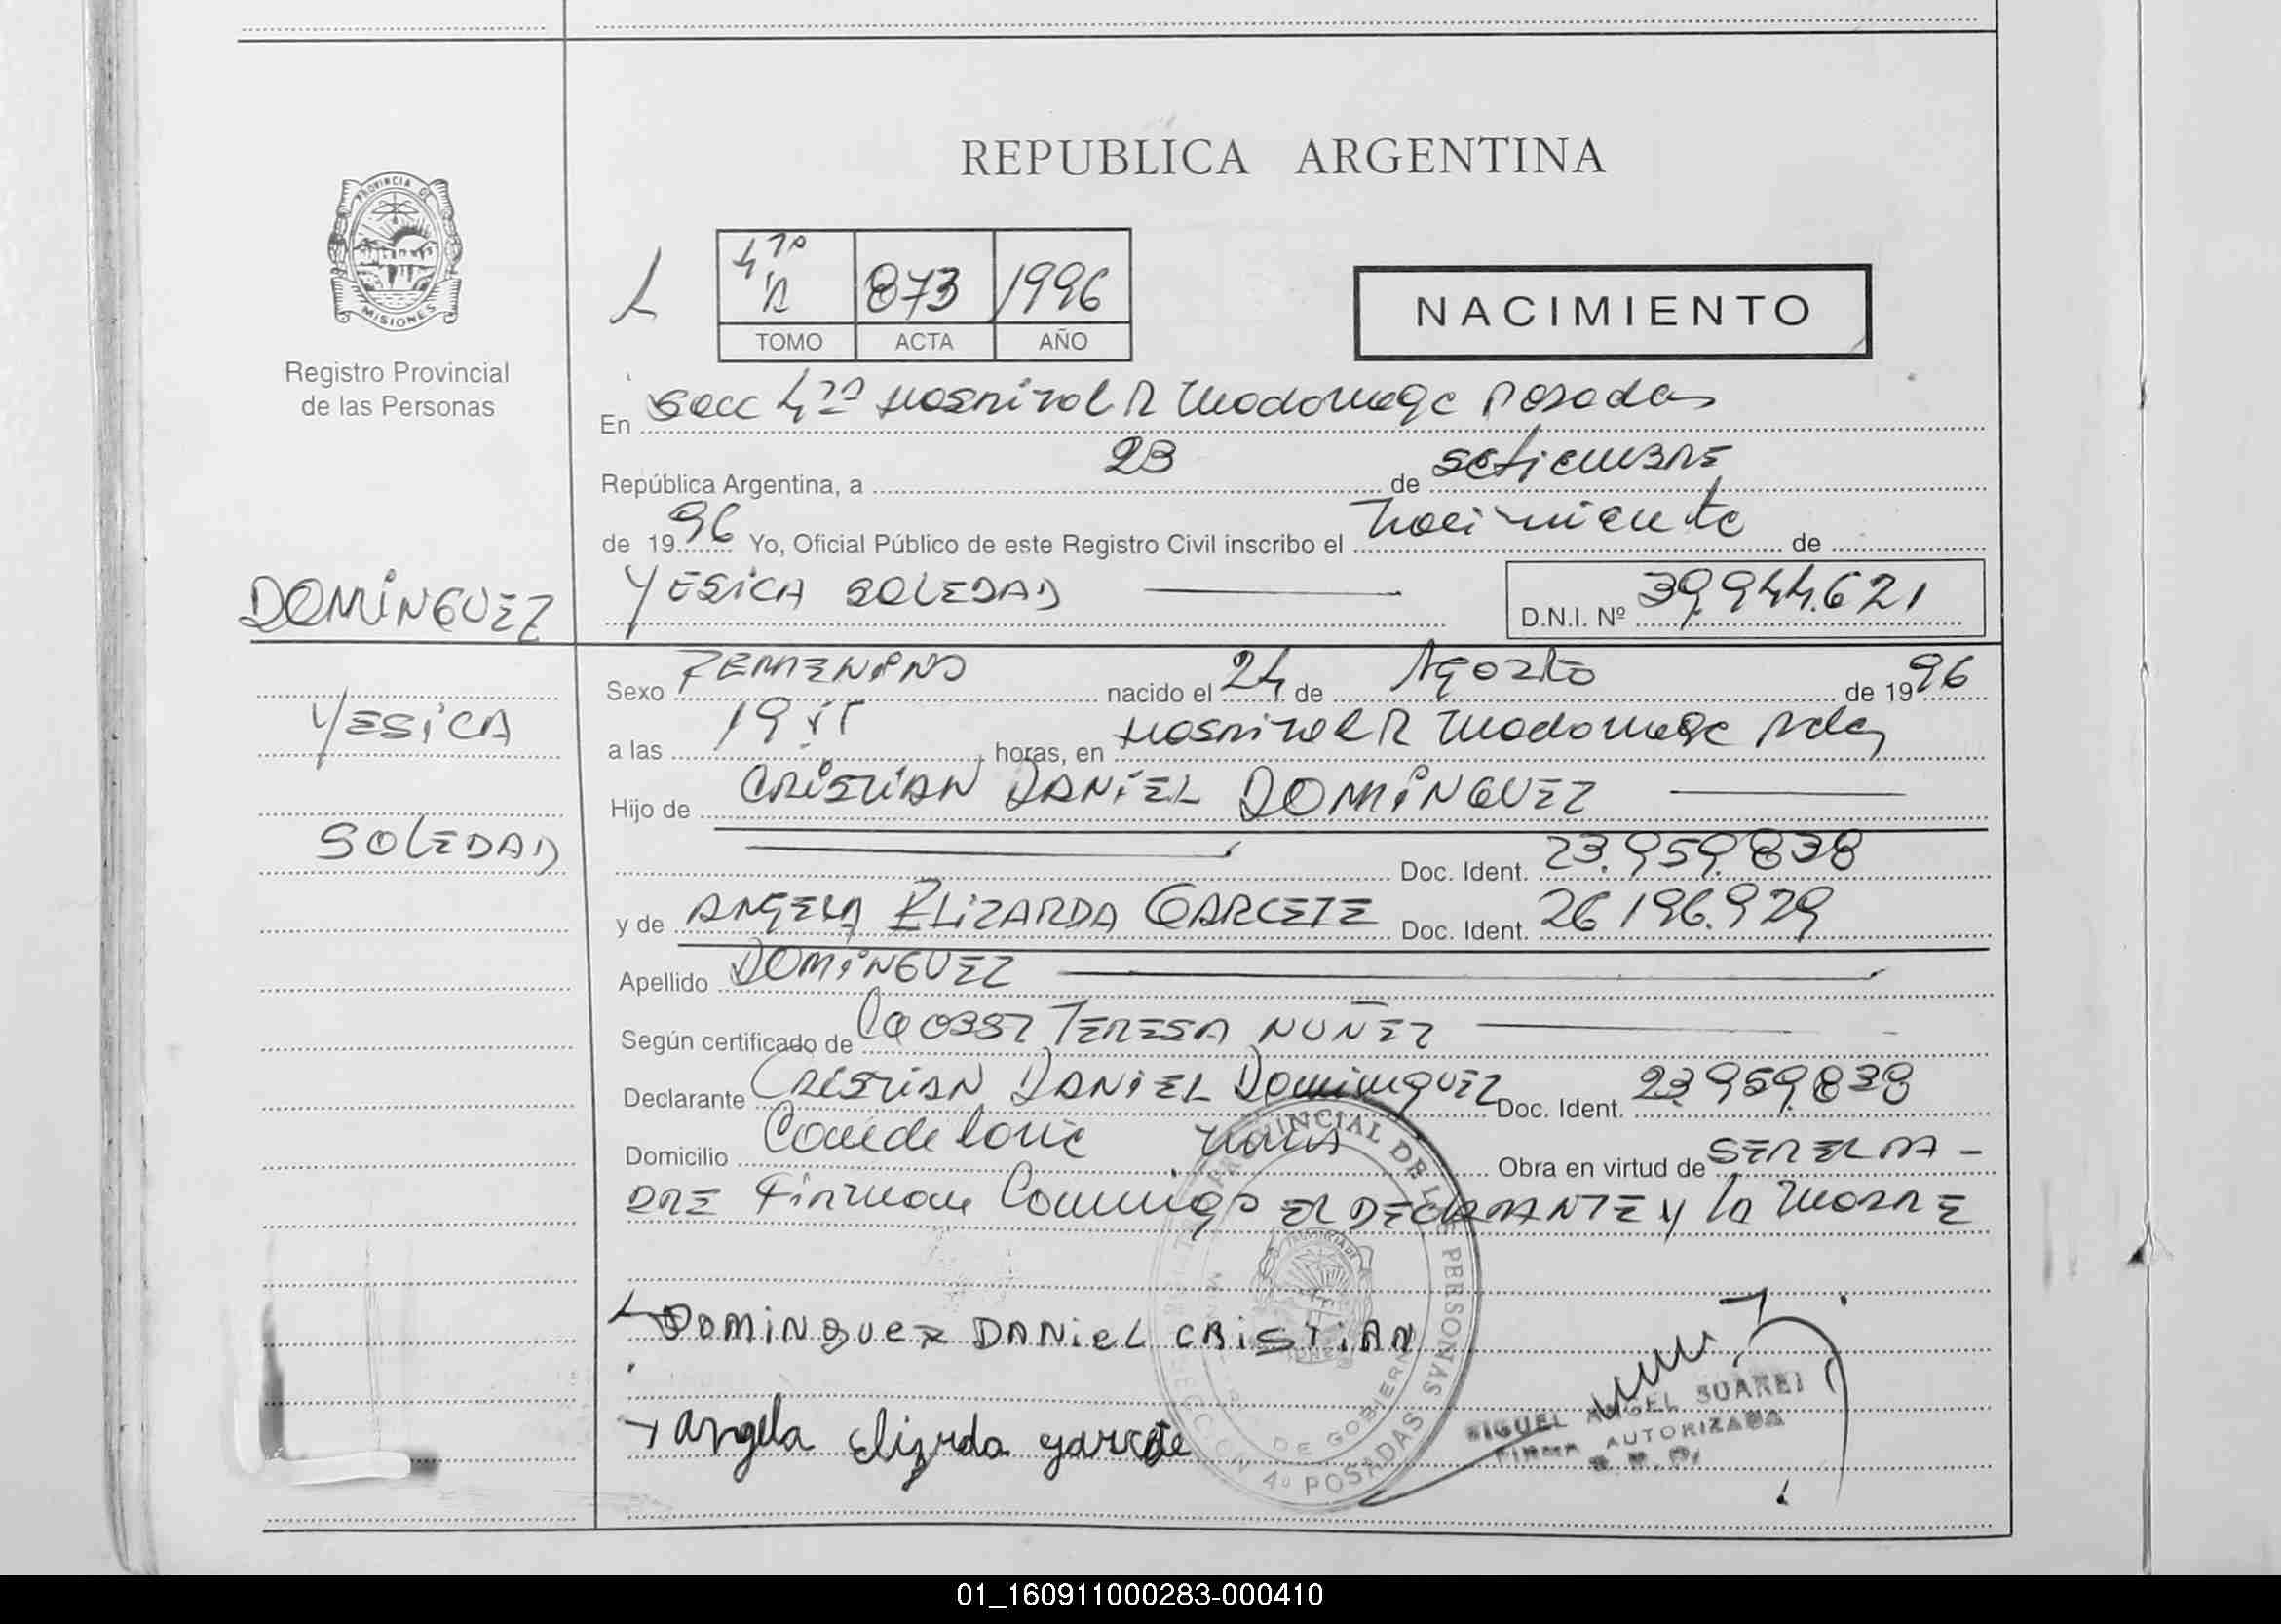 REPUBLICA ARGENTINA
PROVINCIA DE
MISIONES
Registro Provincial
de las Personas
873 1996
TOMO ACTA AÑO
NACIMIENTO
En Secc 4ta Hospital R Madariaga Posadas
República Argentina, a 23 de setiembre
de 1996 Yo, Oficial Público de este Registro Civil inscribo el nacimiento de
DOMÍNGUEZ
YESICA SOLEDAD
D.N.I. Nº 39.944.621
YESICA
SOLEDAD
Sexo FEMENINO nacido el 24 de Agosto de 1996
a las 19 horas, en Hospital R Madariaga Pdas
Hijo de CRISTIAN DANIEL DOMÍNGUEZ
Doc. Ident. 23.959.838
y de ANGELA ELIZARDA GARCETE Doc. Ident. 26 196.929
Apellido DOMÍNGUEZ
Según certificado de TERESA NUÑEZ
Declarante CRISTIAN DANIEL DOMINGUEZ Doc. Ident. 23.959.838
Domicilio Candelaria Obra en virtud de SER EL PA-
DRE Firman Conmigo EL DECLARANTE y la MADRE
DOMINGUEZ DANIEL CRISTIAN
Angela Elizrda garcete
PROVINCIAL DE LAS PERSONAS
DE GOBIERNO
SECCION 4º POSADAS
MIGUEL ANGEL SUAREZ
FIRMA AUTORIZADA
01_160911000283-000410